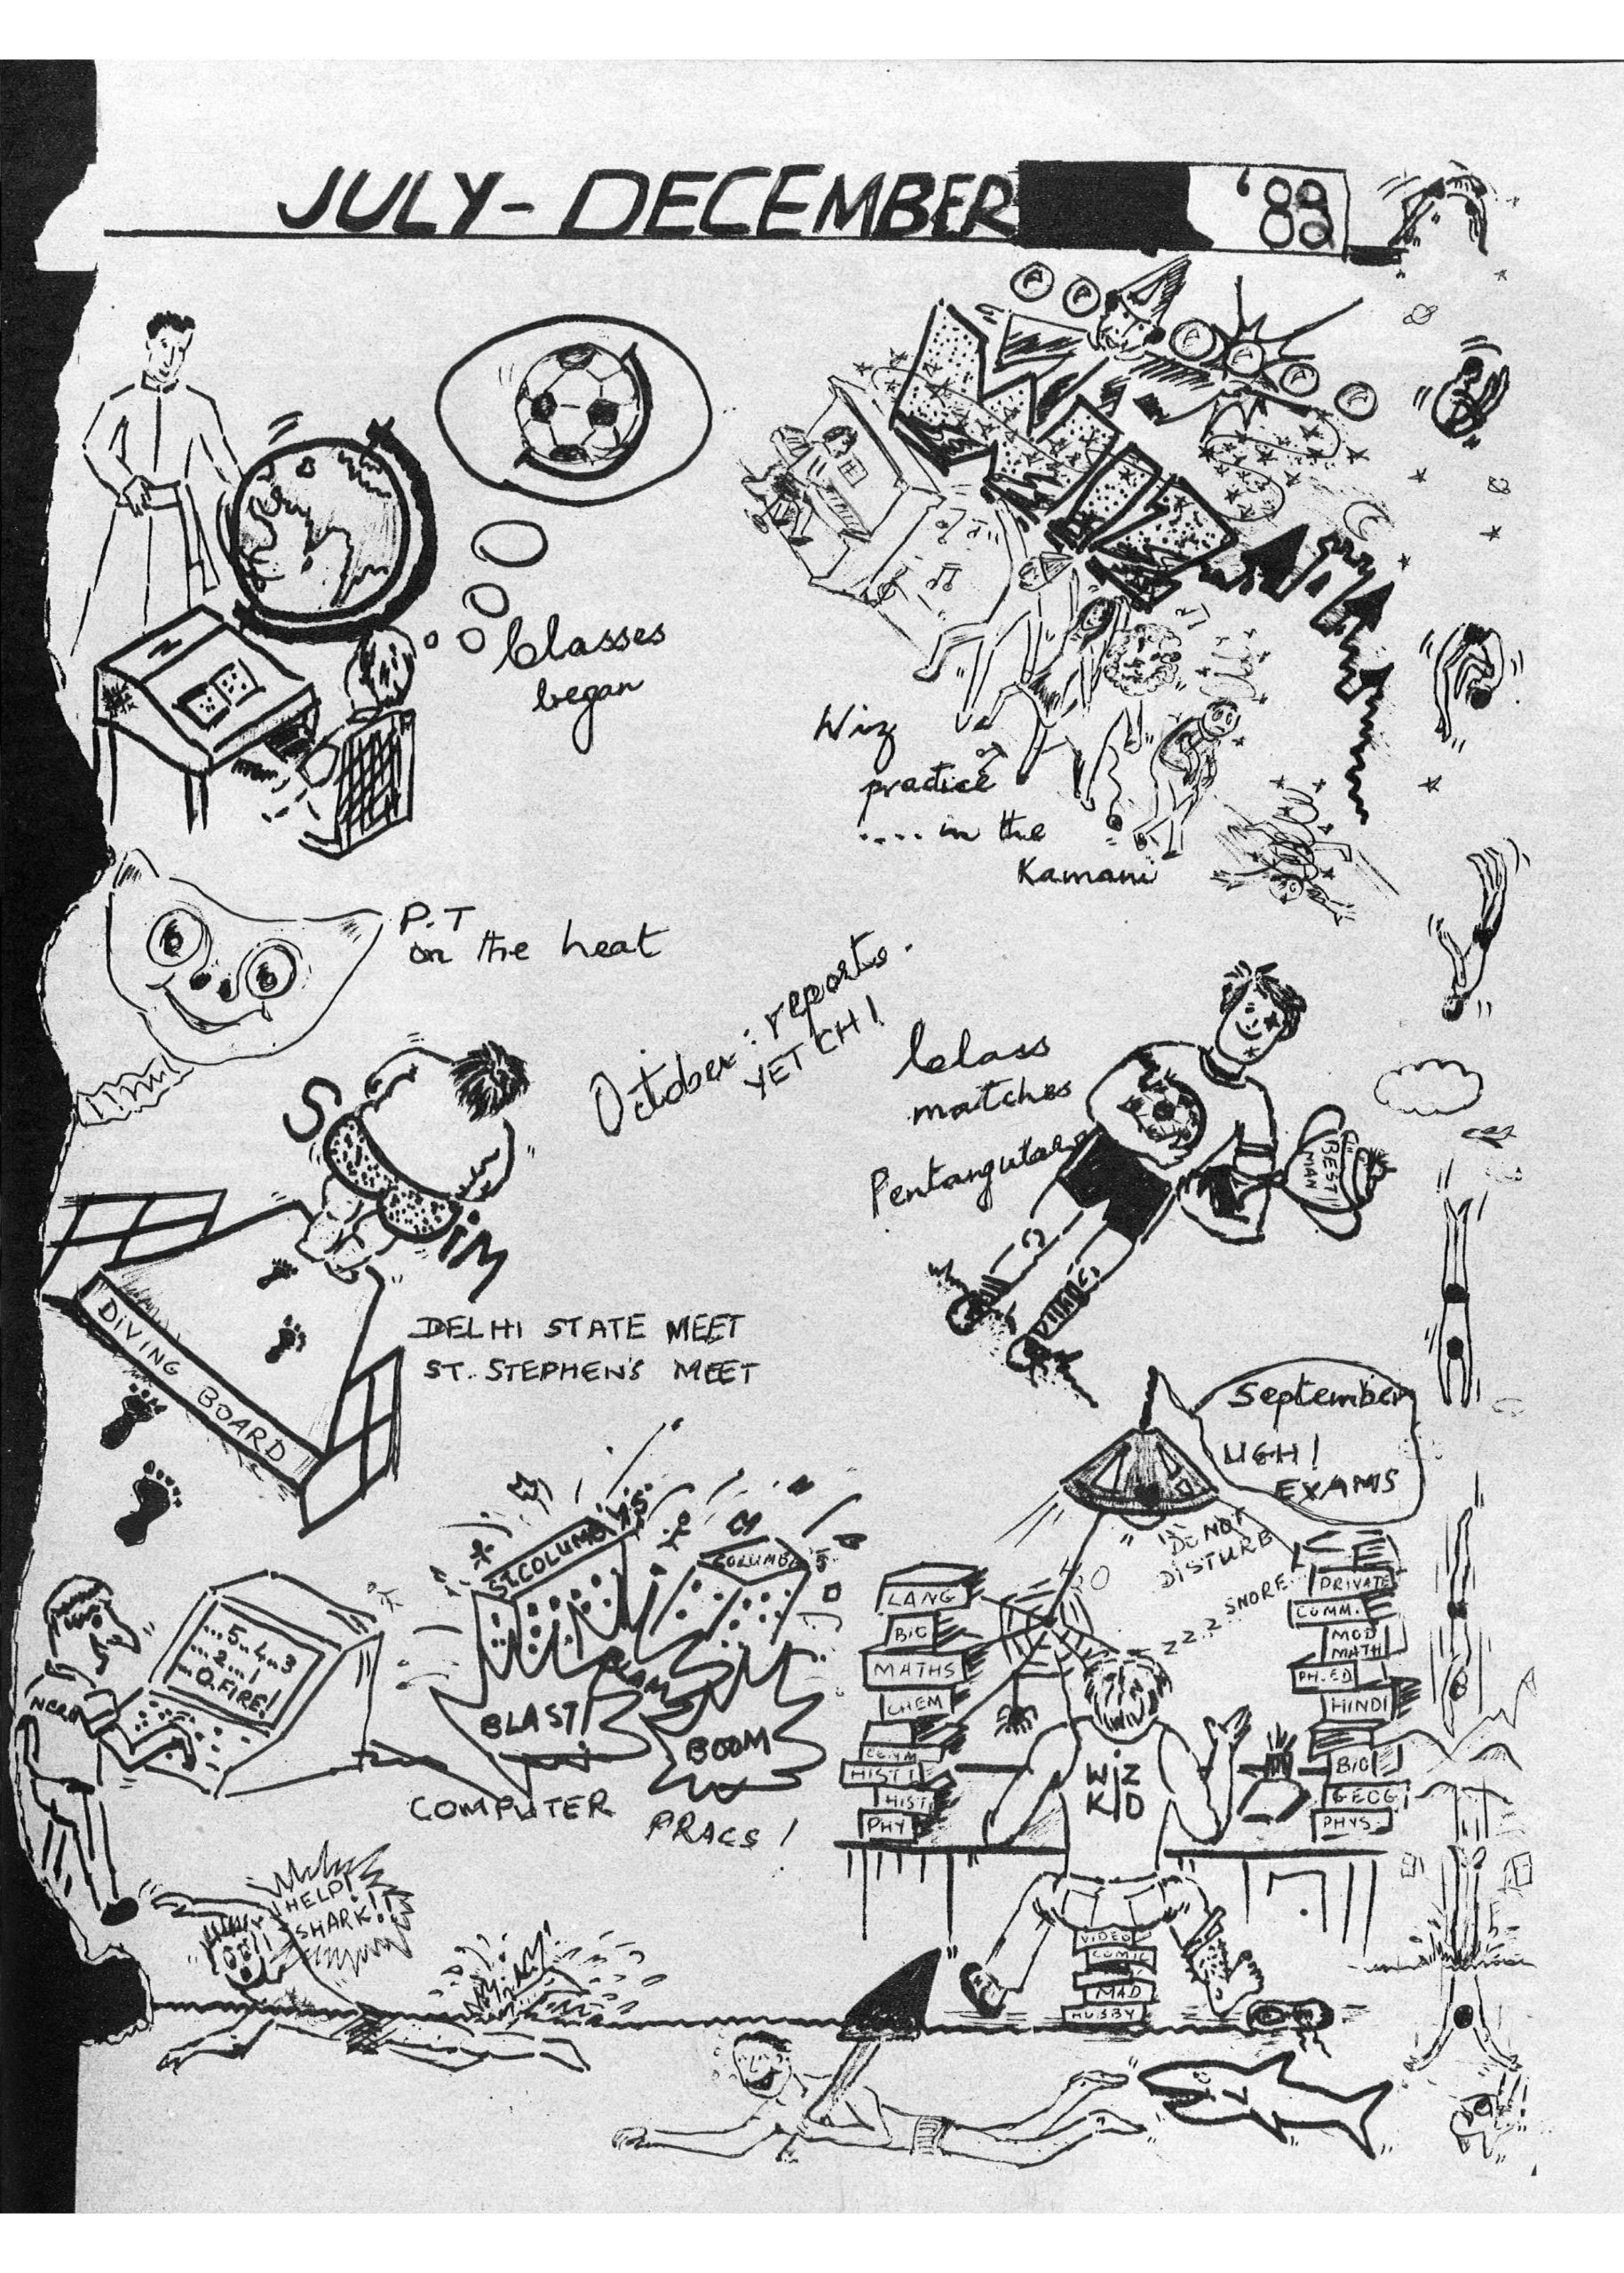 JULY - DECEMBER '82
Classes
began
Wiz
practice
.... in the
Kamani
P.T
on the heat
October: reports.
YETCH!
Class
matches
Pentangular
BEST
MAN
SWIM
DIVING BOARD
DELHI STATE MEET
ST. STEPHEN'S MEET
September
UGH!
EXAMS
DO NOT
DISTURB
ZZ.Z SNORE...
ST. COLUMBA'S
COLUMBA'S
...5..4..3
...2...1
...0.FIRE!
BLAM
BLAST
BOOM
COMPUTER
PRACS!
LANG
BIO
MATHS
CHEM
COMM
HIST
HIST
PHY
PRIVATE
COMM.
MOD
MATH
PH.ED
HINDI
BIO
GEOG
PHYS.
WIZ
KID
VIDEO
COMIC
MAD
HELP!
SHARK!!